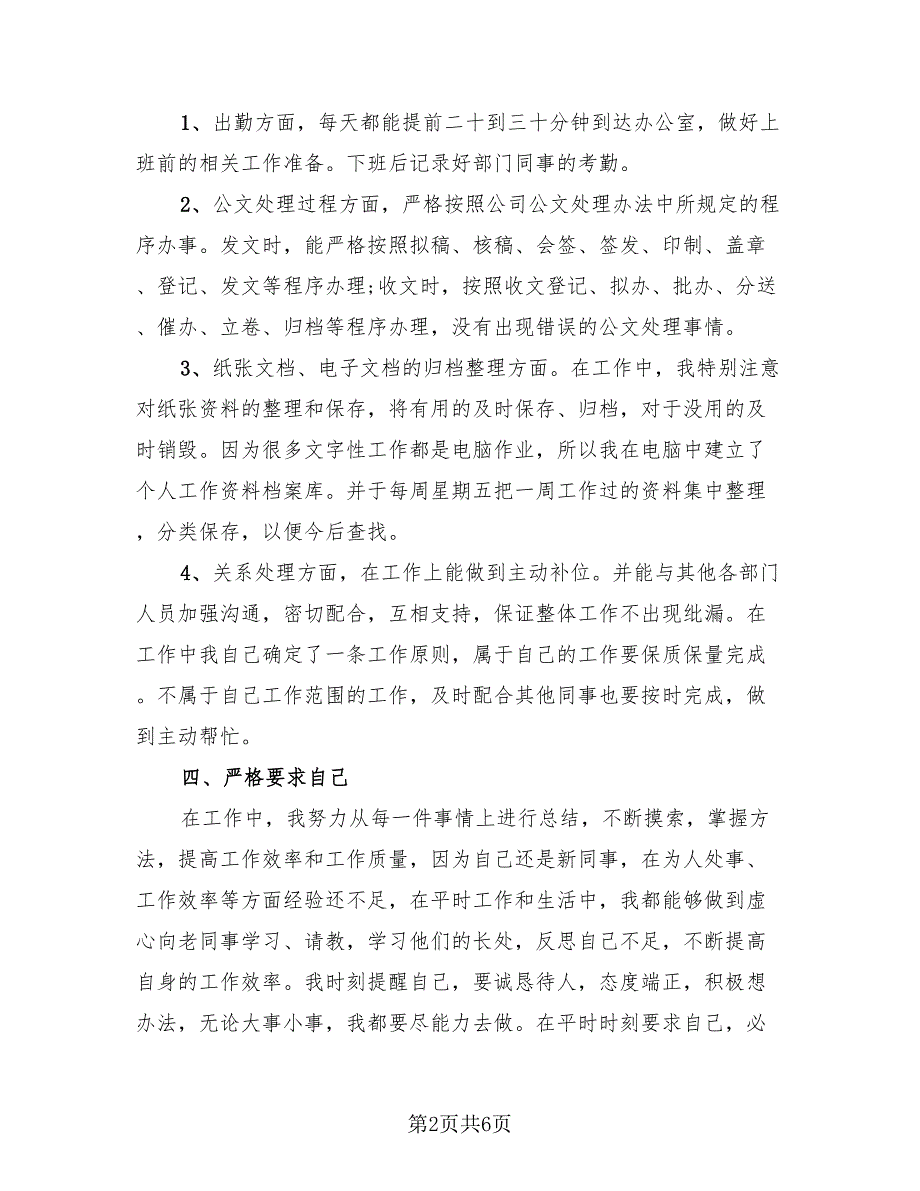 1、出勤方面，每天都能提前二十到三十分钟到达办公室，做好上
班前的相关工作准备。下班后记录好部门同事的考勤。
2、公文处理过程方面，严格按照公司公文处理办法中所规定的程
序办事。发文时，能严格按照拟稿、核稿、会签、签发、印制、盖章
、登记、发文等程序办理;收文时，按照收文登记、拟办、批办、分送
、催办、立卷、归档等程序办理，没有出现错误的公文处理事情。
3、纸张文档、电子文档的归档整理方面。在工作中，我特别注意
对纸张资料的整理和保存，将有用的及时保存、归档，对于没用的及
时销毁。因为很多文字性工作都是电脑作业，所以我在电脑中建立了
个人工作资料档案库。并于每周星期五把一周工作过的资料集中整理
，分类保存，以便今后查找。
4、关系处理方面，在工作上能做到主动补位。并能与其他各部门
人员加强沟通，密切配合，互相支持，保证整体工作不出现纰漏。在
工作中我自己确定了一条工作原则，属于自己的工作要保质保量完成
。不属于自己工作范围的工作，及时配合其他同事也要按时完成，做
到主动帮忙。
四、严格要求自己
在工作中，我努力从每一件事情上进行总结，不断摸索，掌握方
法，提高工作效率和工作质量，因为自己还是新同事，在为人处事、
工作效率等方面经验还不足，在平时工作和生活中，我都能够做到虚
心向老同事学习、请教，学习他们的长处，反思自己不足，不断提高
自身的工作效率。我时刻提醒自己，要诚恳待人，态度端正，积极想
办法，无论大事小事，我都要尽能力去做。在平时时刻要求自己，必
第2页共6页